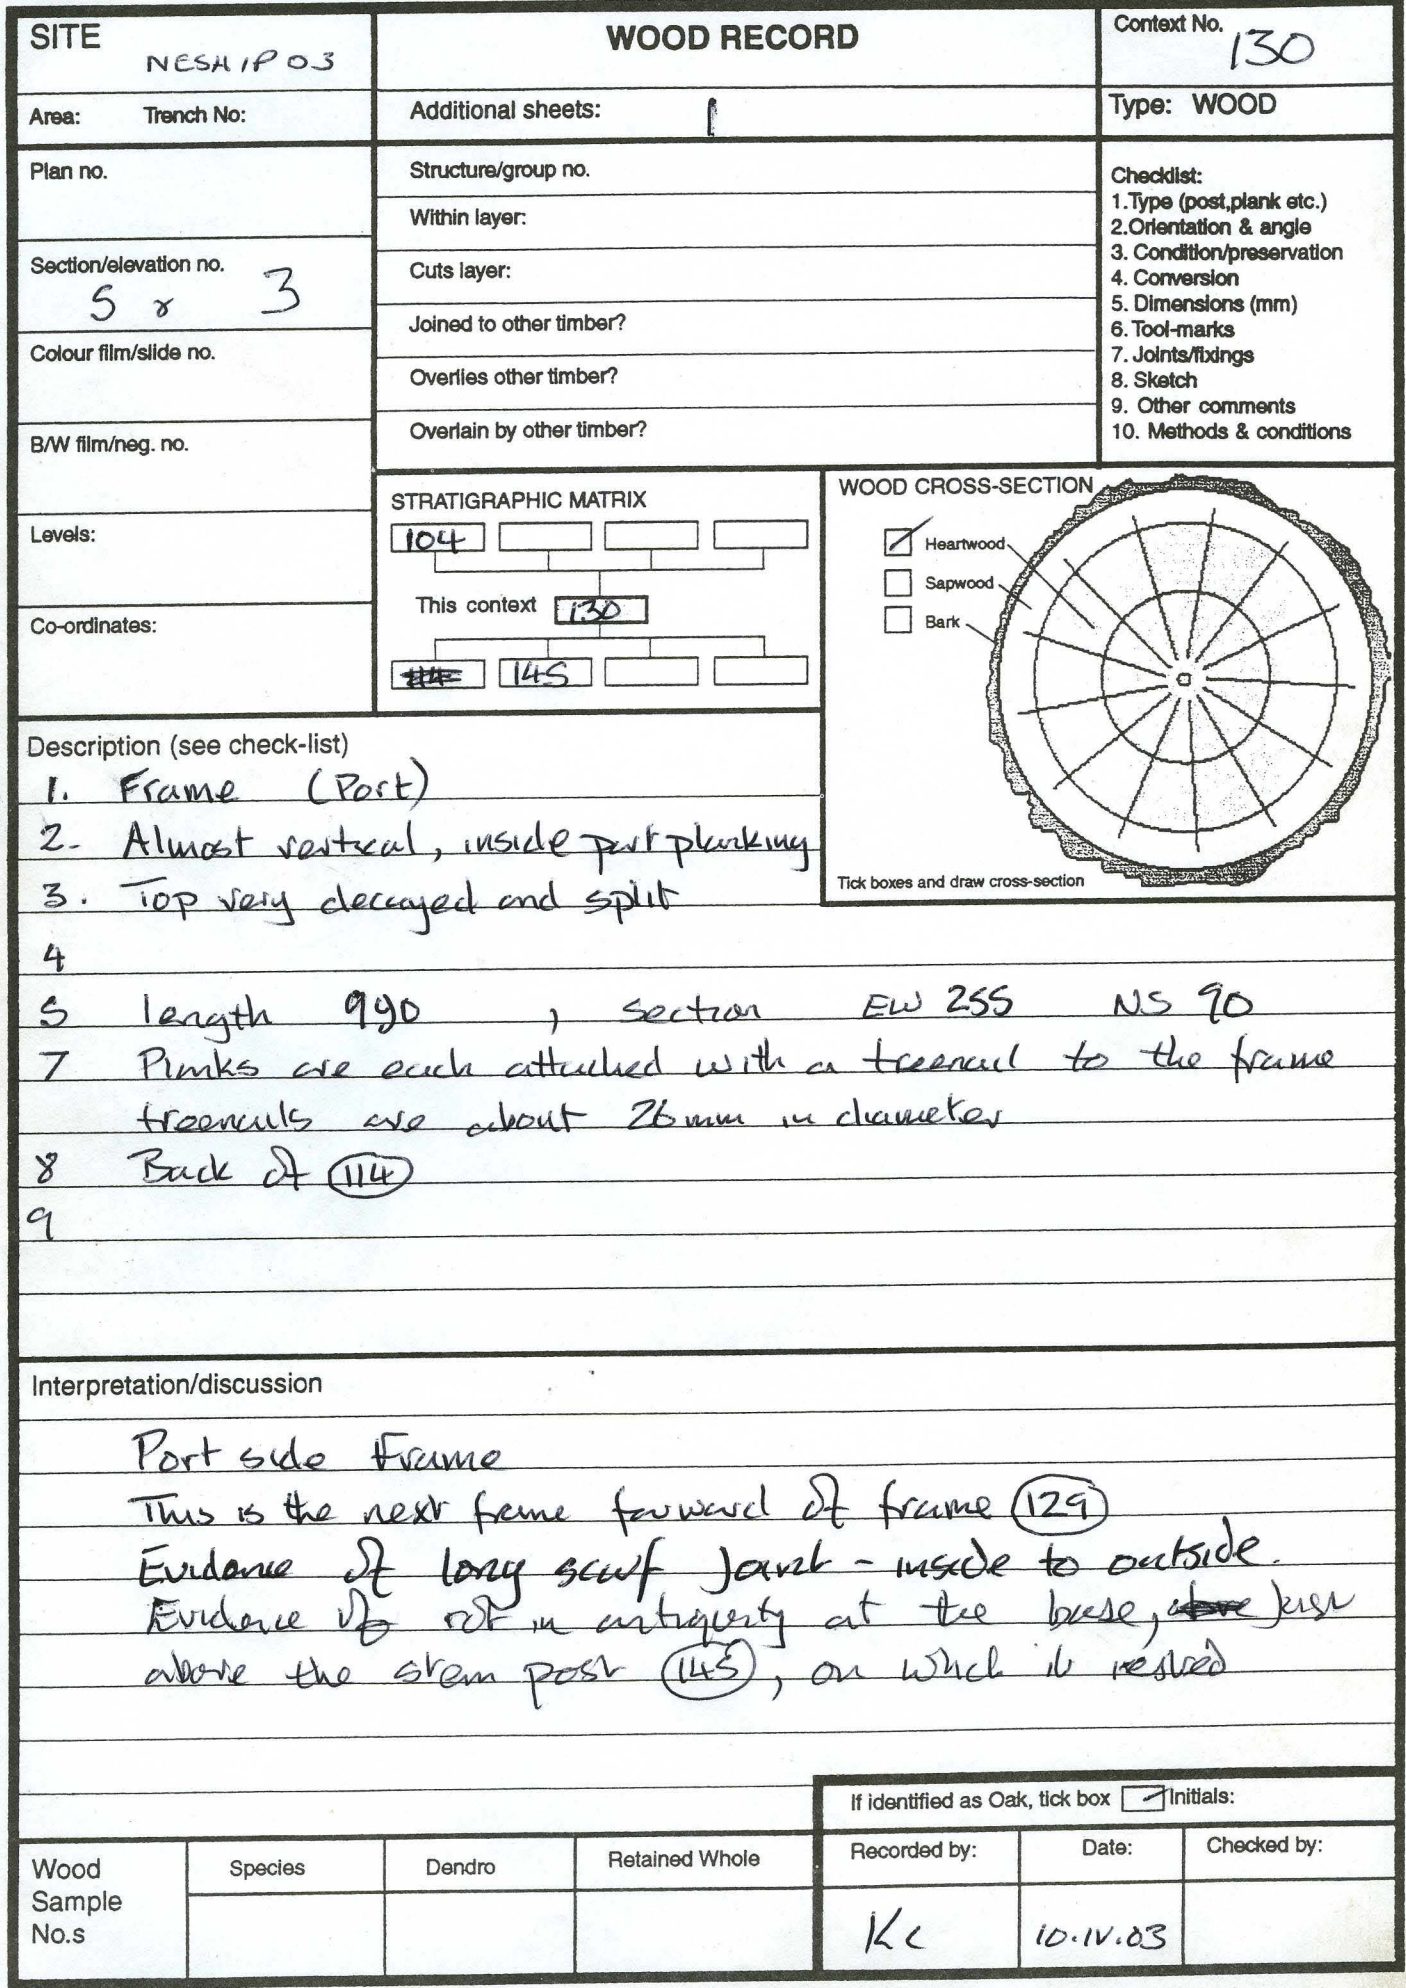 SITE
NESHIP 03
WOOD RECORD
Context No.
130
Area: Trench No:
Additional sheets: 1
Type: WOOD
Plan no.
Structure/group no.
Within layer:
Section/elevation no.
5 & 3
Cuts layer:
Joined to other timber?
Colour film/slide no.
Overlies other timber?
B/W film/neg. no.
Overlain by other timber?
Checklist:
1.Type (post,plank etc.)
2.Orientation & angle
3. Condition/preservation
4. Conversion
5. Dimensions (mm)
6. Tool-marks
7. Joints/fixings
8. Sketch
9. Other comments
10. Methods & conditions
Levels:
Co-ordinates:
STRATIGRAPHIC MATRIX
104
This context 130
145
WOOD CROSS-SECTION
Heartwood
Sapwood
Bark
Tick boxes and draw cross-section
Description (see check-list)
1. Frame (Port)
2- Almost vertical, inside port planking
3. Top very decayed and split
4
5 length 990 , section EW 255 NS 90
7 Planks are each attached with a treenail to the frame
treenails are about 26mm in diameter
8 Back of 114
9
Interpretation/discussion
Port side Frame
This is the next frame forward of frame 129
Evidence of long scarf joint - inside to outside.
Evidence of rot in antiquity at the base, just
above the stem post 145, on which it rested
If identified as Oak, tick box Initials:
Wood
Sample
No.s
Species
Dendro
Retained Whole
Recorded by:
Date:
Checked by:
KC
10.IV.03